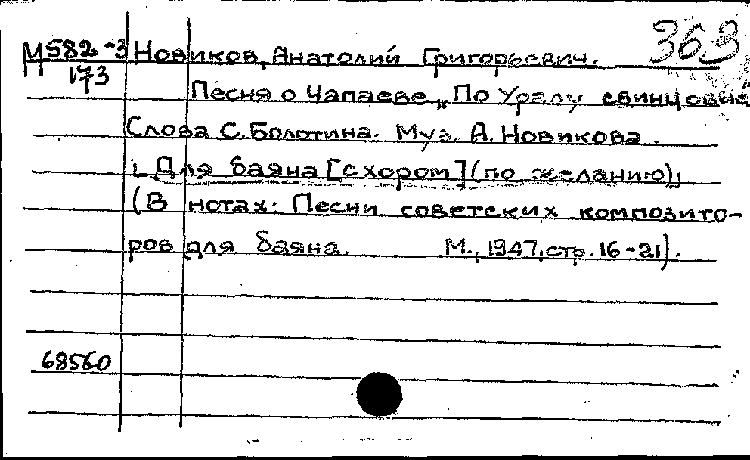 363
М582-3 Новиков, Анатолий Григорьевич.
173
Песня о Чапаеве „По Уралу свинцовые
Слова С. Болотина. Муз. А. Новикова.
Для баяна [с хором] (по желанию).
(В нотах: Песни советских композито-
ров для баяна. М., 1947, стр. 16-21).
68560